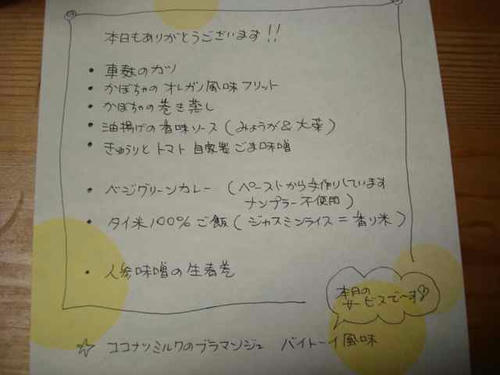 本日もありがとうございます!!
• 車麩のカツ
• かぼちゃのオレガノ風味フリット
• かぼちゃの巻き蒸し
• 油揚げの香味ソース(みょうが&大葉)
• きゅうりとトマト 自家製ごま味噌
• ベジグリーンカレー (ペーストから手作りしています
ナンプラー不使用)
• タイ米100%ご飯(ジャスミンライス=香り米)
• 人参味噌の生春巻
本日の
サービスで〜す♡
☆ ココナツミルクのブラマンジェ バイトーイ風味